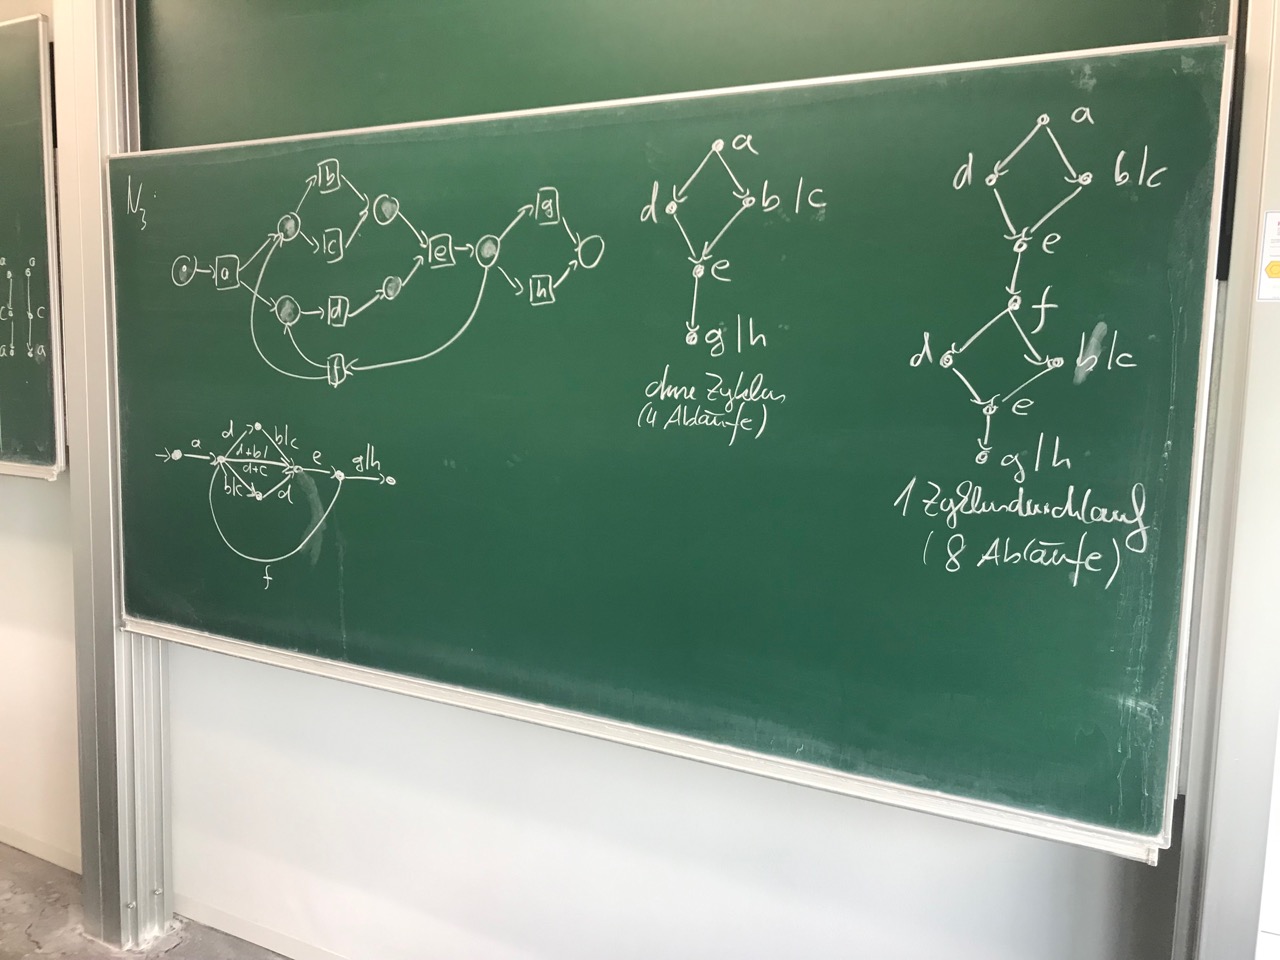 N₃:
b
c
a
e
g
h
d
f
a
d
b|c
d+b|
d+c
b|c
d
e
g|h
f
a
d
b|c
e
g|h
ohne Zyklus
(4 Abläufe)
a
d
b|c
e
f
d
b|c
e
g|h
1 Zyklendurchlauf
(8 Abläufe)
a a
c c
a a